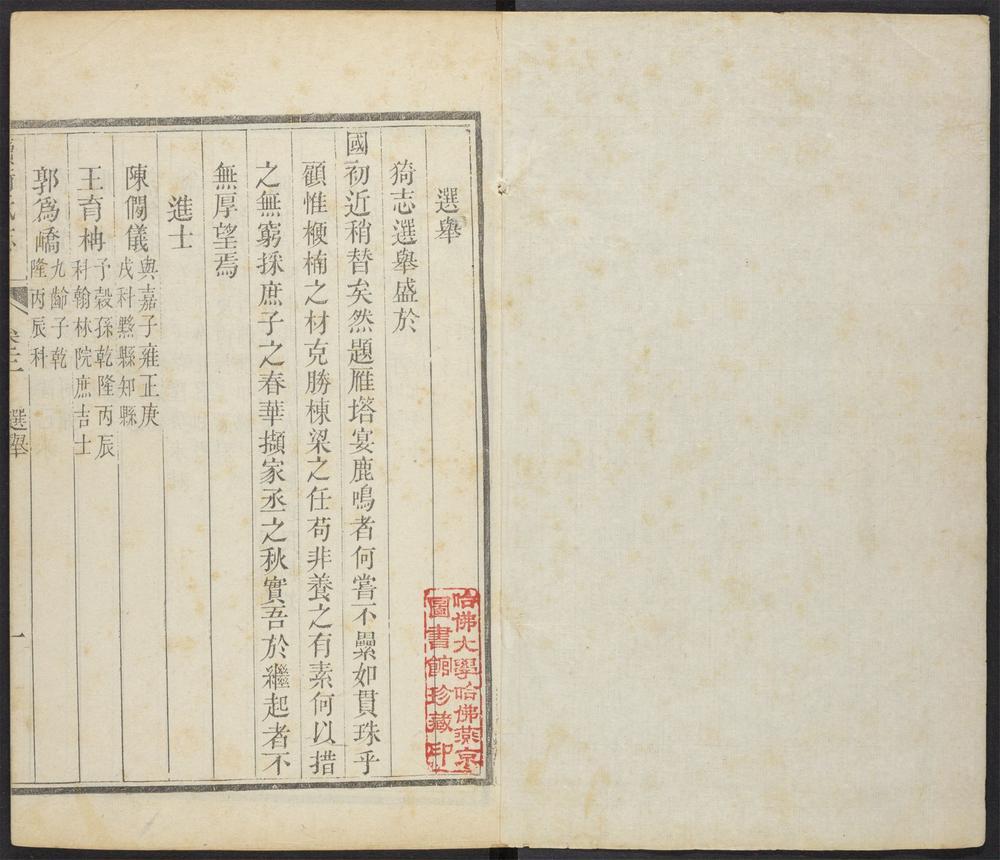 選舉
猗志選舉盛於
國初近稍替矣然題雁塔宴鹿鳴者何嘗不纍如貫珠乎
顧惟楩楠之材克勝棟梁之任苟非養之有素何以措
之無窮採庶子之春華擷家丞之秋實吾於繼起者不
無厚望焉
進士
陳僩儀與嘉子雍正庚
戌科黟縣知縣
王育柟于穀孫乾隆丙辰
科翰林院庶吉士
郭為嶠九齡子乾
隆丙辰科
選舉
一
哈佛大學哈佛燕京
圖書館珍藏印